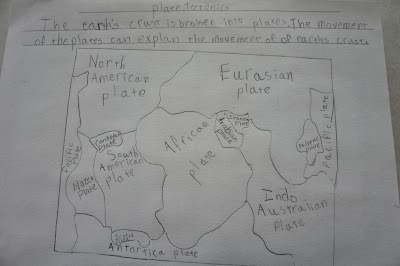 plate tectonics
The earth's crust is broken into plates. The movement
of the plates can explan the movement of of earths crust.
North
American
plate
Eurasian
plate
African
plate
Arabian
plate
South
American
plate
Nazca
plate
Pacific
plate
Pacific plate
Scotia
plate
Indo
Australian
Plate
Antartica plate